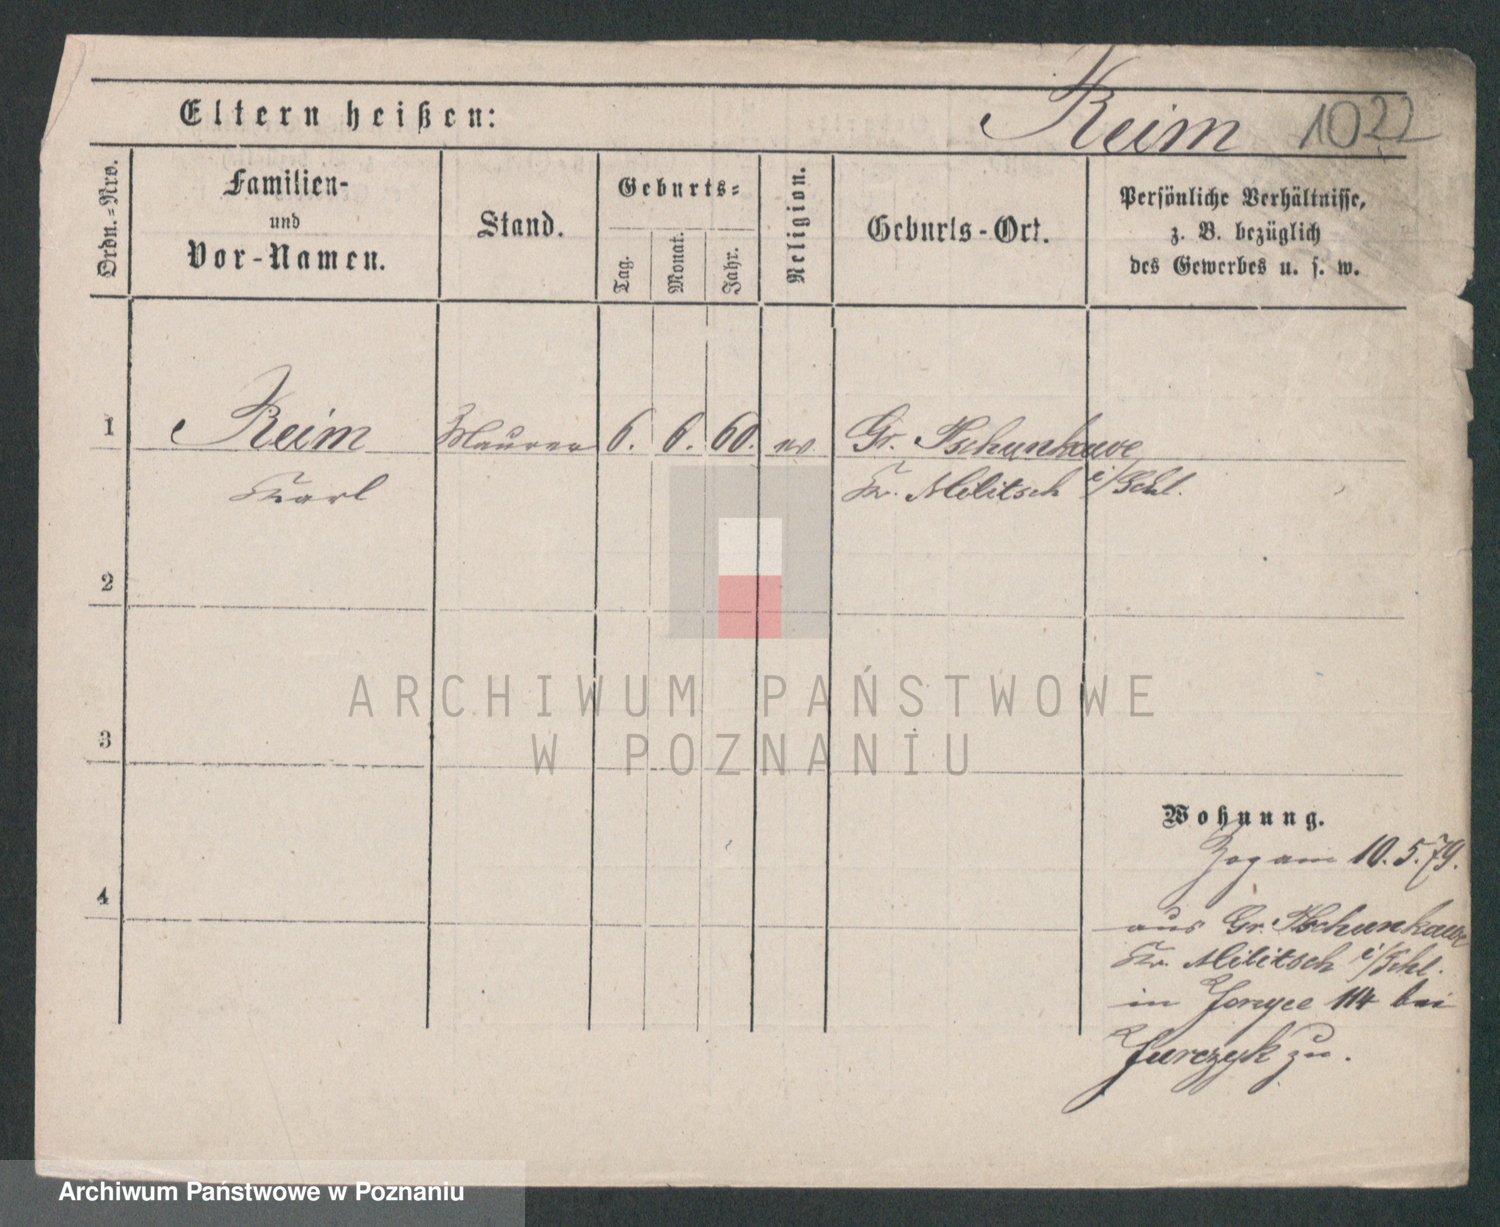 Eltern heißen:
Reim 1022
Ordn.=Nro.
Familien-
und
Vor-Namen.
Stand.
Geburts=
Tag.
Monat.
Jahr.
Religion.
Geburts-Ort.
Persönliche Verhältnisse,
z. B. bezüglich
des Gewerbes u. s. w.
1 Reim Maurer 6. 6. 60. ev. Gr. Tschunkawe
Karl Kr. Militsch i/Schl.
2
3
4
Wohnung.
Zog am 10.5.79.
aus Gr. Tschunkawe
Kr. Militsch i/Schl.
in 114 bei
Jurczyk zu.
ARCHIWUM PAŃSTWOWE
W POZNANIU
Archiwum Państwowe w Poznaniu